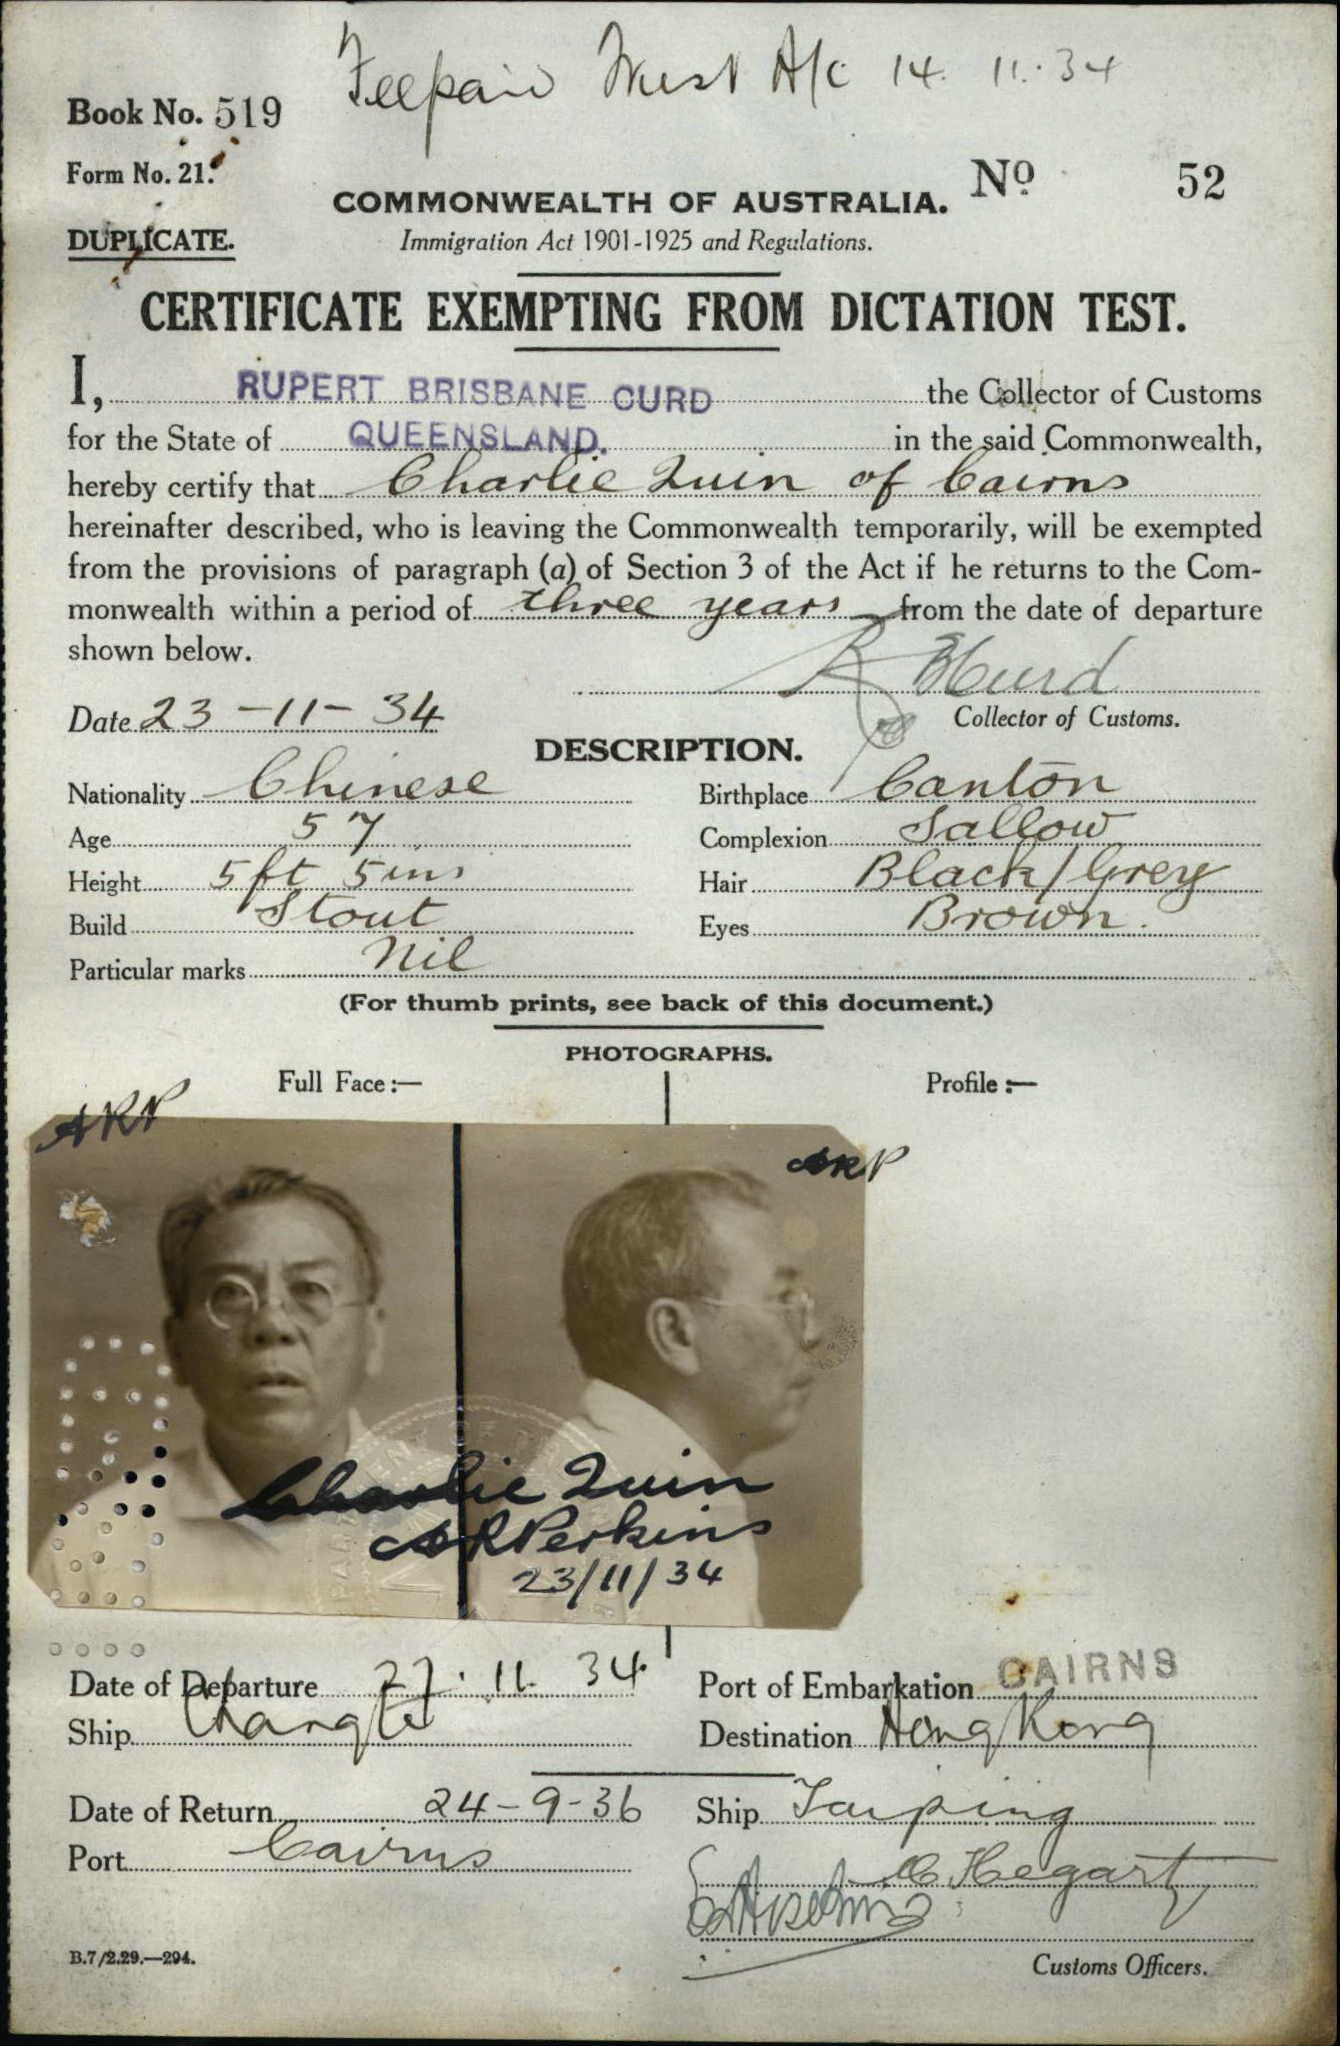 Feepaid Trust A/c 14. 11. 34
Book No. 519
Form No. 21.
COMMONWEALTH OF AUSTRALIA.
No. 52
DUPLICATE.
Immigration Act 1901-1925 and Regulations.
CERTIFICATE EXEMPTING FROM DICTATION TEST.
I, RUPERT BRISBANE CURD the Collector of Customs
for the State of QUEENSLAND. in the said Commonwealth,
hereby certify that Charlie Quin of Cairns
hereinafter described, who is leaving the Commonwealth temporarily, will be exempted
from the provisions of paragraph (a) of Section 3 of the Act if he returns to the Com-
monwealth within a period of three years from the date of departure
shown below.
R B Curd
Date 23-11-34
Collector of Customs.
DESCRIPTION.
Nationality Chinese
Birthplace Canton
Age 57
Complexion Sallow
Height 5ft 5ins
Hair Black/Grey
Build Stout
Eyes Brown.
Particular marks Nil
(For thumb prints, see back of this document.)
PHOTOGRAPHS.
Full Face:—
Profile:—
ARP
ARP
Charlie Quin
ARPerkins
23/11/34
Date of Departure 27. 11. 34.
Port of Embarkation CAIRNS
Ship Changte
Destination Hong Kong
Date of Return 24-9-36
Ship Taiping
Port Cairns
Hegarty
B.7/2.29.—294.
Customs Officers.